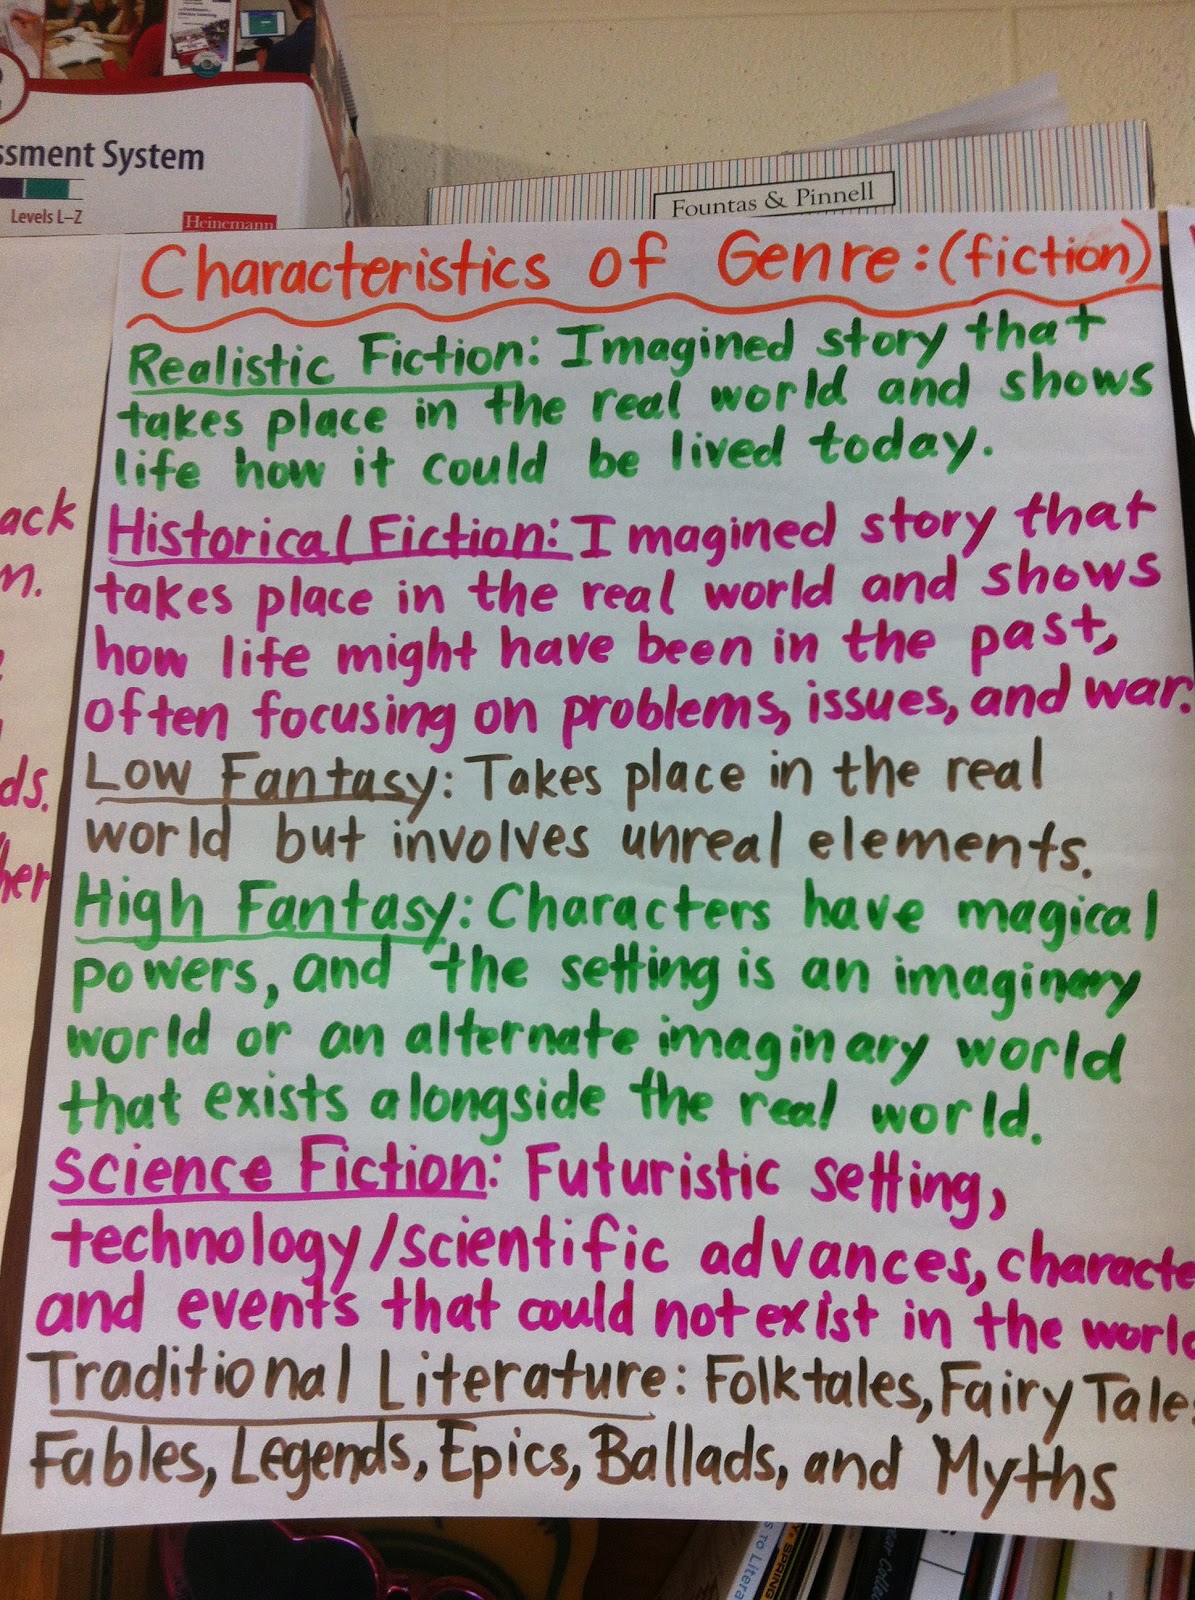 ssment System
Levels L–Z
Heinemann
Fountas & Pinnell
Characteristics of Genre: (fiction)
Realistic Fiction: Imagined story that
takes place in the real world and shows
life how it could be lived today.
Historical Fiction: Imagined story that
takes place in the real world and shows
how life might have been in the past,
often focusing on problems, issues, and war.
Low Fantasy: Takes place in the real
world but involves unreal elements.
High Fantasy: Characters have magical
powers, and the setting is an imaginary
world or an alternate imaginary world
that exists alongside the real world.
Science Fiction: Futuristic setting,
technology/scientific advances, characte
and events that could not exist in the world
Traditional Literature: Folktales, Fairy Tale
Fables, Legends, Epics, Ballads, and Myths
ack
n.
ds.
her
s to Litera
SPRING